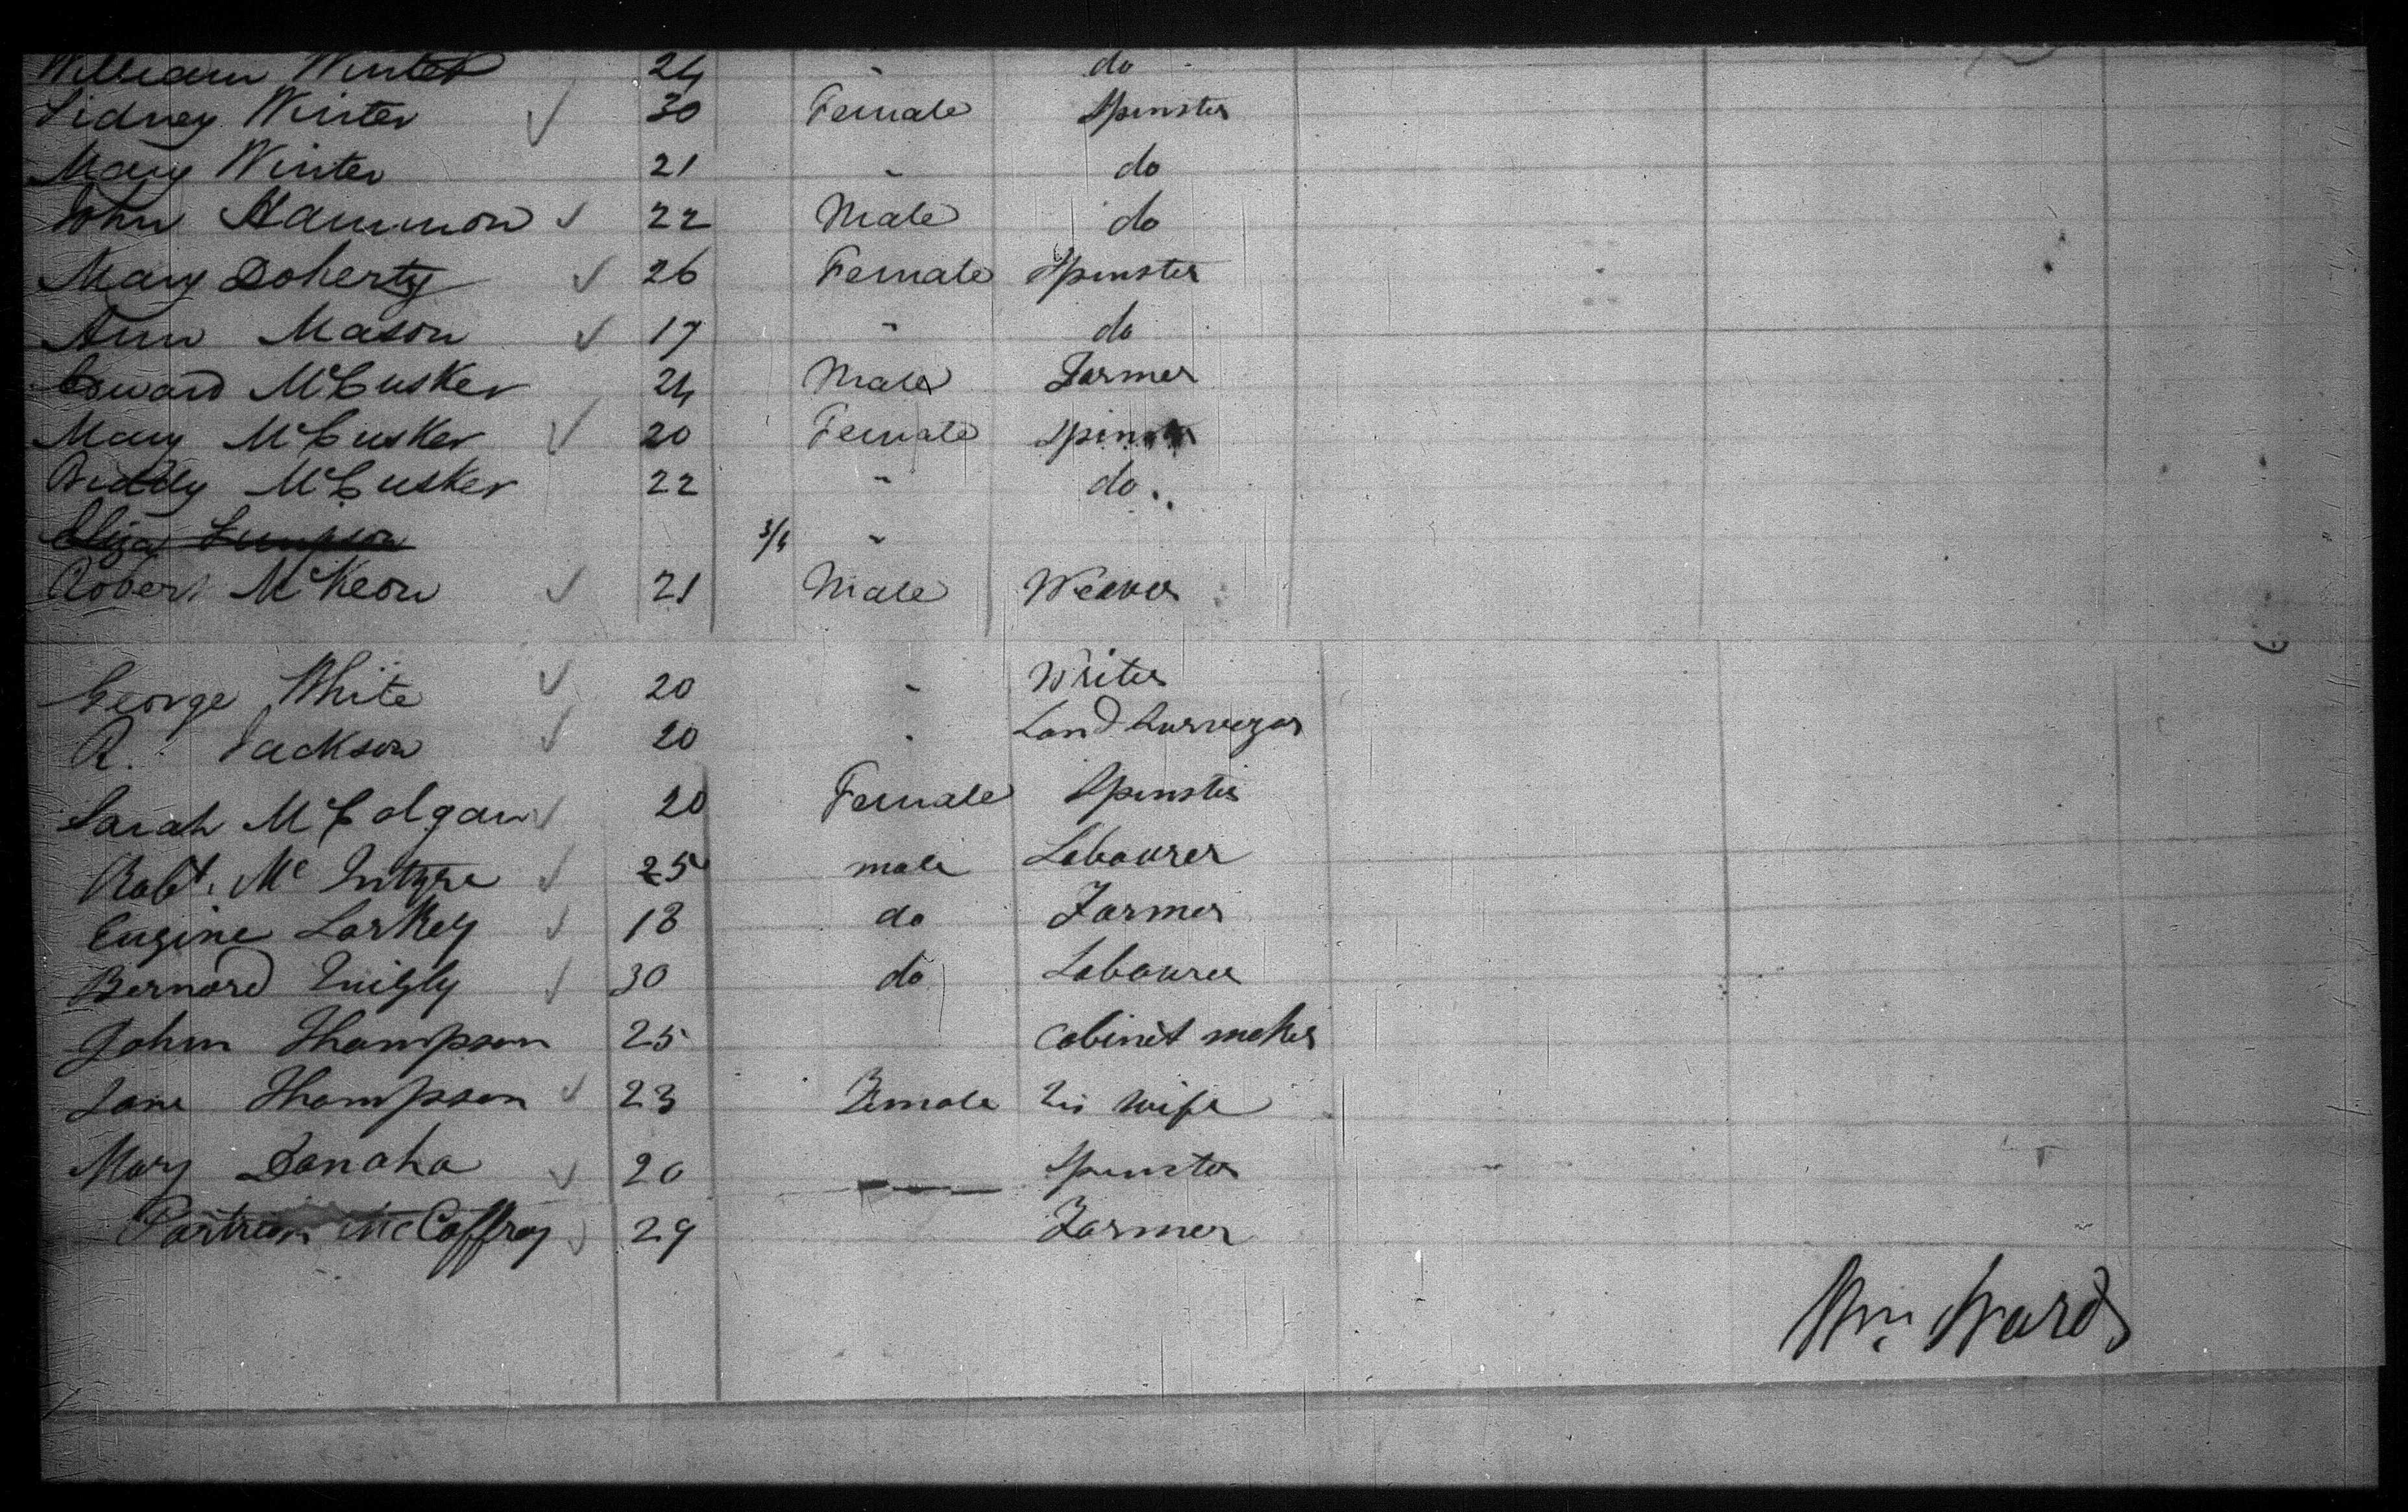 William Winter 24 " do
Sidney Winter ✓ 30 Female Spinster
Mary Winter 21 " do
John Hammon ✓ 22 Male do
Mary Doherty ✓ 26 Female Spinster
Ann Mason ✓ 17 " do
Edward McCusker 24 Male Farmer
Mary McCusker ✓ 20 Female Spinster
Biddy McCusker 22 " do
Eliza "
Robert McKeon ✓ 21 Male Weaver
George White ✓ 20 " Writer
R. Jackson ✓ 20 " Land Surveyor
Sarah McColgan ✓ 20 Female Spinster
Robt. Mc Intyre ✓ 25 male Labourer
Eugine Larkey ✓ 18 do Farmer
Bernard Quigly ✓ 30 do Labourer
John Thompson 25 Cabinet maker
Jane Thompson ✓ 23 Female his wife
Mary Donaha ✓ 20 Spinster
McCaffray ✓ 29 Farmer
Wm. Ward